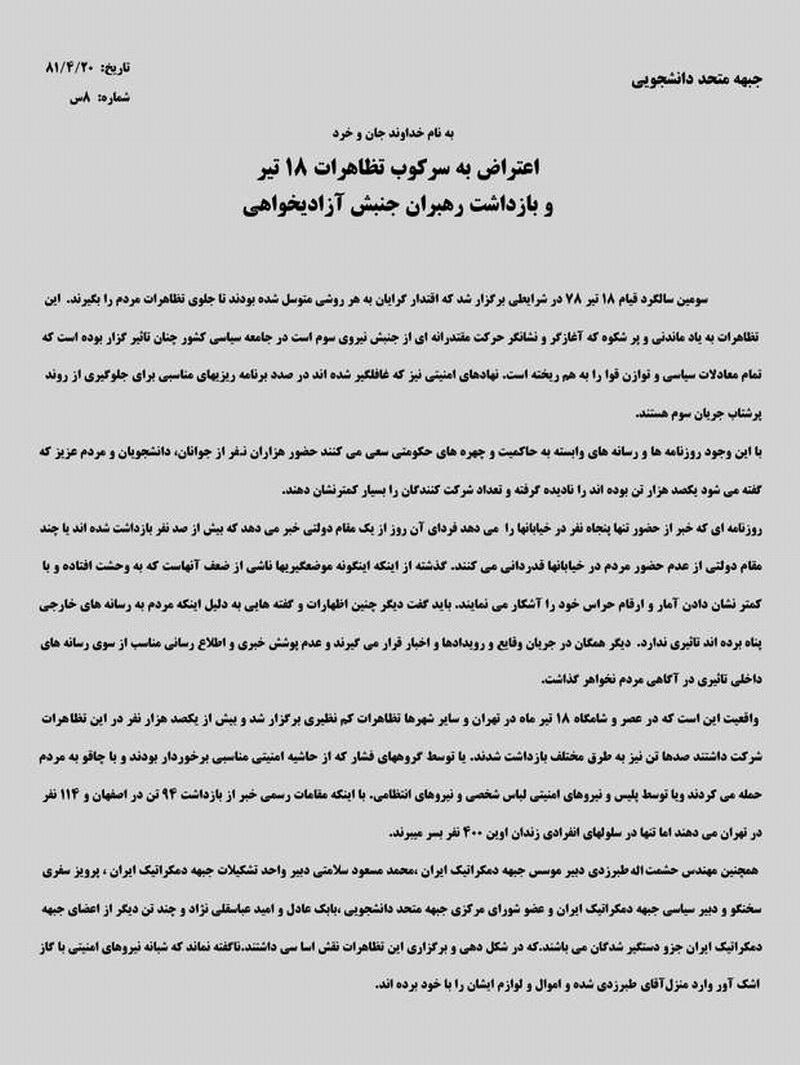 جبهه متحد دانشجویی
تاریخ: ۸۱/۴/۲۰
شماره: ۸س
به نام خداوند جان و خرد
اعتراض به سرکوب تظاهرات ۱۸ تیر
و بازداشت رهبران جنبش آزادیخواهی
سومین سالگرد قیام ۱۸ تیر ۷۸ در شرایطی برگزار شد که اقتدار گرایان به هر روشی متوسل شده بودند تا جلوی تظاهرات مردم را بگیرند. این
تظاهرات به یاد ماندنی و پر شکوه که آغازگر و نشانگر حرکت مقتدرانه ای از جنبش نیروی سوم است در جامعه سیاسی کشور چنان تاثیر گزار بوده است که
تمام معادلات سیاسی و توازن قوا را به هم ریخته است. نهادهای امنیتی نیز که غافلگیر شده اند در صدد برنامه ریزیهای مناسبی برای جلوگیری از روند
پرشتاب جریان سوم هستند.
با این وجود روزنامه ها و رسانه های وابسته به حاکمیت و چهره های حکومتی سعی می کنند حضور هزاران نفر از جوانان، دانشجویان و مردم عزیز که
گفته می شود یکصد هزار تن بوده اند را نادیده گرفته و تعداد شرکت کنندگان را بسیار کمترنشان دهند.
روزنامه ای که خبر از حضور تنها پنجاه نفر در خیابانها را می دهد فردای آن روز از یک مقام دولتی خبر می دهد که بیش از صد نفر بازداشت شده اند یا چند
مقام دولتی از عدم حضور مردم در خیابانها قدردانی می کنند. گذشته از اینکه اینگونه موضعگیریها ناشی از ضعف آنهاست که به وحشت افتاده و با
کمتر نشان دادن آمار و ارقام حراس خود را آشکار می نمایند. باید گفت دیگر چنین اظهارات و گفته هایی به دلیل اینکه مردم به رسانه های خارجی
پناه برده اند تاثیری ندارد. دیگر همگان در جریان وقایع و رویدادها و اخبار قرار می گیرند و عدم پوشش خبری و اطلاع رسانی مناسب از سوی رسانه های
داخلی تاثیری در آگاهی مردم نخواهر گذاشت.
واقعیت این است که در عصر و شامگاه ۱۸ تیر ماه در تهران و سایر شهرها تظاهرات کم نظیری برگزار شد و بیش از یکصد هزار نفر در این تظاهرات
شرکت داشتند صدها تن نیز به طرق مختلف بازداشت شدند. یا توسط گروههای فشار که از حاشیه امنیتی مناسبی برخوردار بودند و با چاقو به مردم
حمله می کردند ویا توسط پلیس و نیروهای امنیتی لباس شخصی و نیروهای انتظامی. با اینکه مقامات رسمی خبر از بازداشت ۹۴ تن در اصفهان و ۱۱۴ نفر
در تهران می دهند اما تنها در سلولهای انفرادی زندان اوین ۴۰۰ نفر بسر میبرند.
همچنین مهندس حشمت اله طبرزدی دبیر موسس جبهه دمکراتیک ایران ،محمد مسعود سلامتی دبیر واحد تشکیلات جبهه دمکراتیک ایران ، پرویز سفری
سخنگو و دبیر سیاسی جبهه دمکراتیک ایران و عضو شورای مرکزی جبهه متحد دانشجویی ،بابک عادل و امید عباسقلی نژاد و چند تن دیگر از اعضای جبهه
دمکراتیک ایران جزو دستگیر شدگان می باشند.که در شکل دهی و برگزاری این تظاهرات نقش اسا سی داشتند.ناگفته نماند که شبانه نیروهای امنیتی با گاز
اشک آور وارد منزل‌آقای طبرزدی شده و اموال و لوازم ایشان را با خود برده اند.